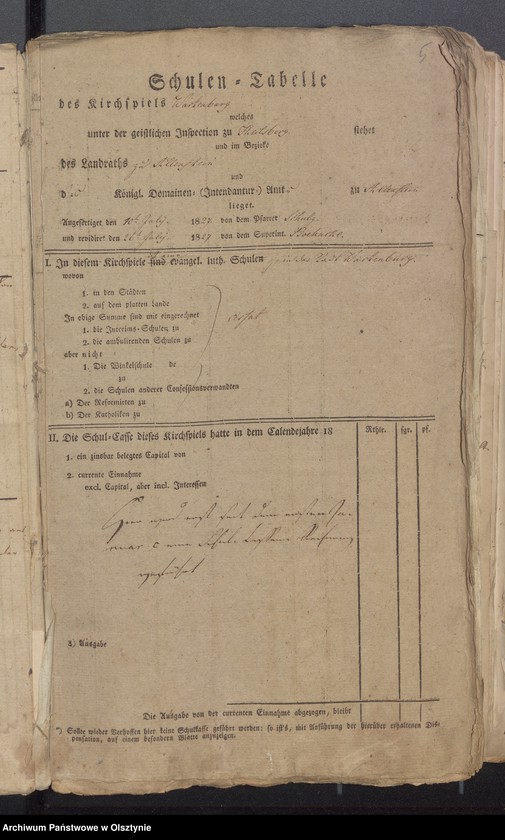 Schulen-Tabelle
des Kirchspiels Wartenburg
welches
unter der geistlichen Inspection zu stehet
und im Bezirke
des Landraths zu Allenstein
und
des Königl. Domainen- (Intendantur-) Amts zu Allenstein
lieget.
Angefertiget den 10t July 1827 von dem Pfarrer Schulz
und revidiret den 26t July 1827 von dem Superint.
I. In diesem Kirchspiele sind evangel. luth. Schulen Wartenburg.
wovon
1. in den Städten
2. auf dem platten Lande
In obige Summe sind mit eingerechnet
1. die Interims-Schulen zu
2. die ambulirenden Schulen zu
aber nicht
1. Die Winkelschule de
zu
2. die Schulen anderer Confessionsverwandten
a) Der Reformirten zu
b) Der Katholiken zu
vacat
II. Die Schul-Casse dieses Kirchspiels hatte in dem Calendejahre 18
Rthlr. sgr. pf.
1. ein zinsbar belegtes Capital von
2. currente Einnahme
excl. Capital, aber incl. Interessen
geführt
3) Ausgabe
Die Ausgabe von der currenten Einnahme abgezogen, bleibt
*) Sollte wieder Verhoffen hier keine Schulkasse geführt werden: so ist's, mit Anführung der hierüber erhaltenen Dis-
pensation, auf einem besondern Blatte anzuzeigen.
Archiwum Państwowe w Olsztynie